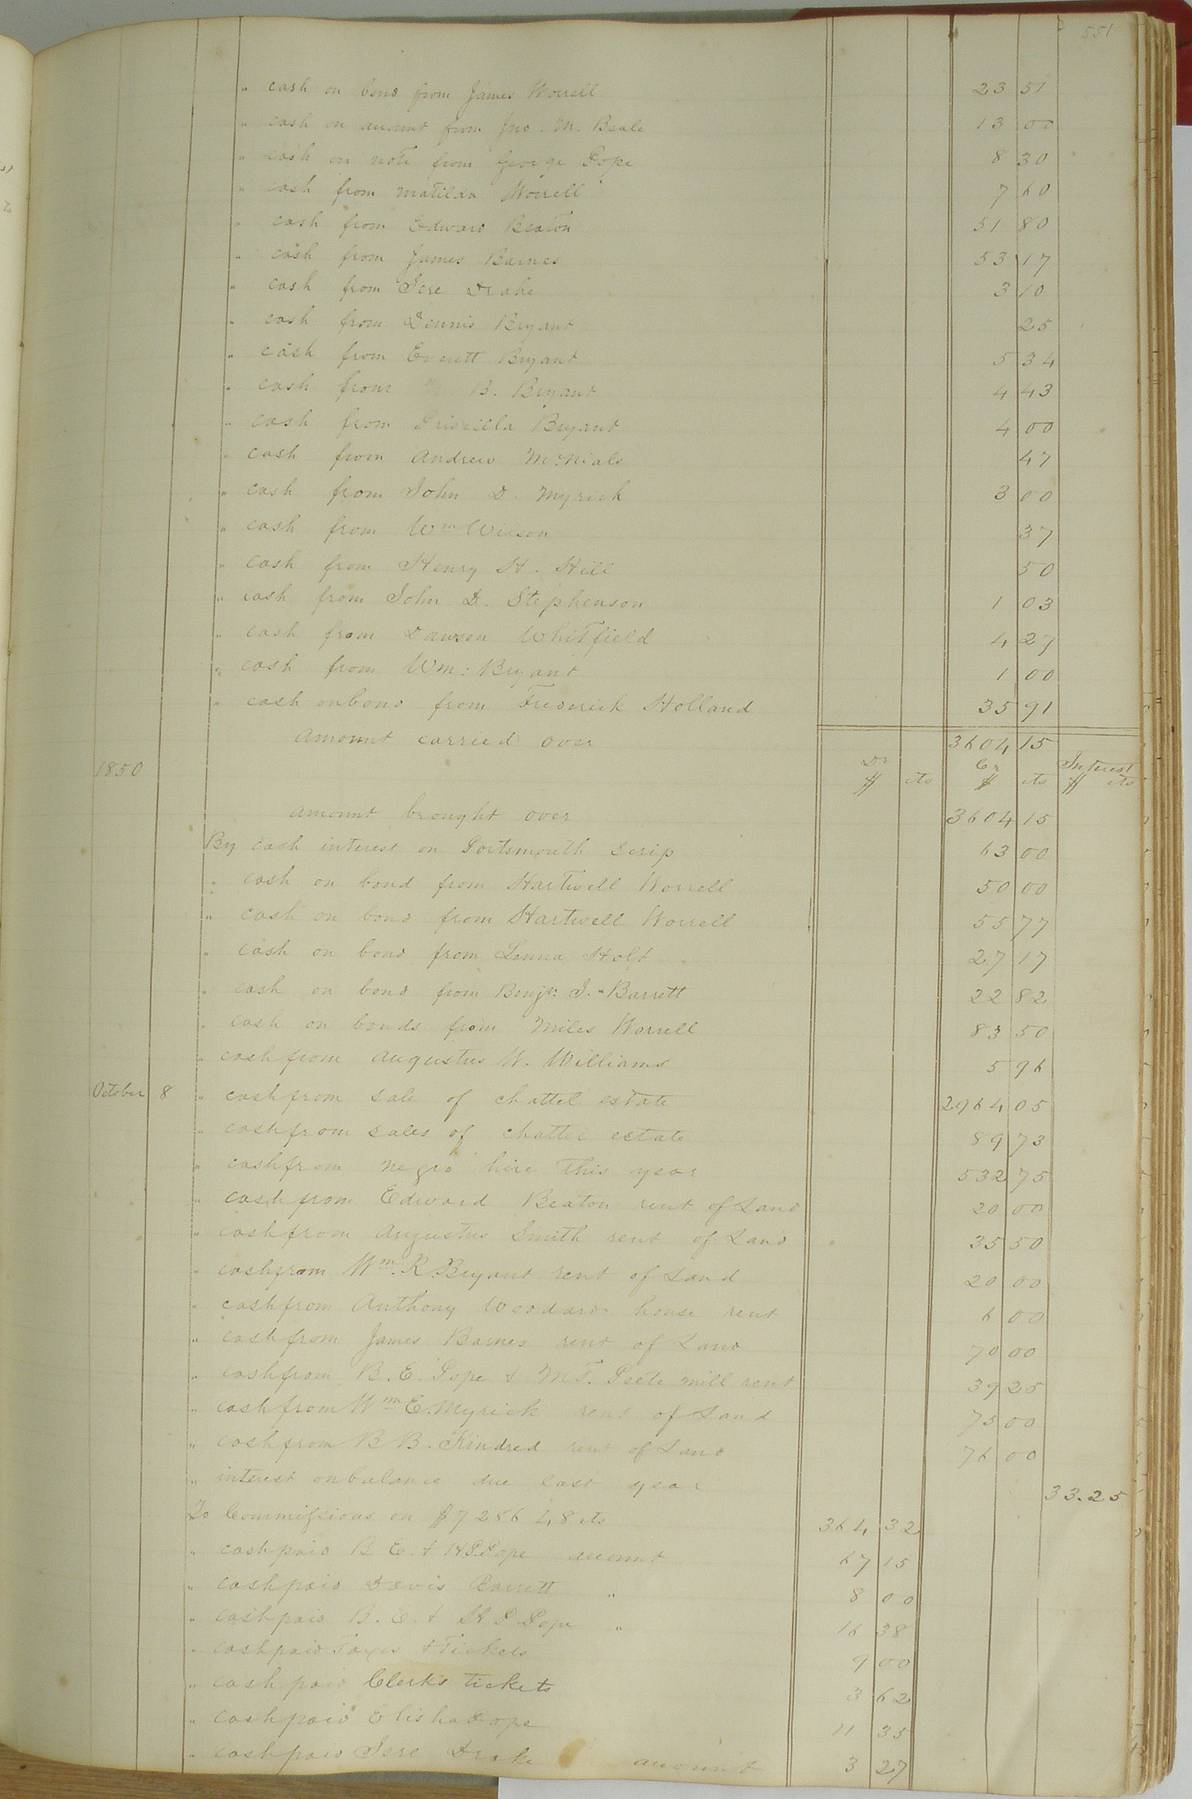 551
" cash on bond from James Worrell 23 51
" cash on account from Jno. M. Beale 13 00
" cash on note from George Pope 8 30
" cash from Matilda Worrell 7 60
" cash from Edward Beaton 51 80
" cash from James Barnes 53 17
" cash from Jere Drake 3 10
" cash from Dennis Bryant 25
" cash from Everett Bryant 5 34
" cash from B. Bryant 4 43
" cash from Priscilla Bryant 4 00
" cash from Andrew McNeals 47
" cash from John D. Myrick 3 00
" cash from Wm Wilson 37
" cash from Henry H. Hill 50
" cash from John D. Stephenson 1 03
" cash from Dawson Whitfield 4 27
" cash from Wm: Bryant 1 00
" cash on bond from Frederick Holland 35 91
Amount carried over 3604 15
1850 Dr $ cts Cr $ cts Interest $ cts
Amount brought over 3604 15
By cash interest on Portsmouth Scrip 63 00
" cash on bond from Hartwell Worrell 50 00
" cash on bond from Hartwell Worrell 55 77
" cash on bond from Holt 27 17
" cash on bond from Benja: J. Barrett 22 82
" cash on bonds from Miles Worrell 83 50
" cash from Augustus W. Williams 5 96
October 8 " cash from sale of chattel estate 2964 05
" cash from sales of chattel estate 89 73
" cash from negro hire this year 532 75
" cash from Edward Beaton rent of Land 20 00
" cash from Augustus Smith rent of Land 35 50
" cash from Wm. R. Bryant rent of Land 20 00
" cash from Anthony Woodard house rent 6 00
" cash from James Barnes rent of Land 70 00
" cash from B. E. Pope & M. T. Peete mill rent 39 25
" cash from Wm E. Myrick rent of Land 75 00
" cash from B B. Kindred rent of Land 76 00
" interest on balance due last year 33.25
To Commissions on $7286 48 cts 364 32
" cash paid B E. & H P Pope account 67 15
" cash paid Davis Barrett " 8 00
" cash paid B. E. & H P Pope " 16 38
" cash paid Taxes & Tickets 9 00
" cash paid Clerk's tickets 3 62
" cash paid Elisha Pope 11 35
" cash paid Jere Drake account 3 27